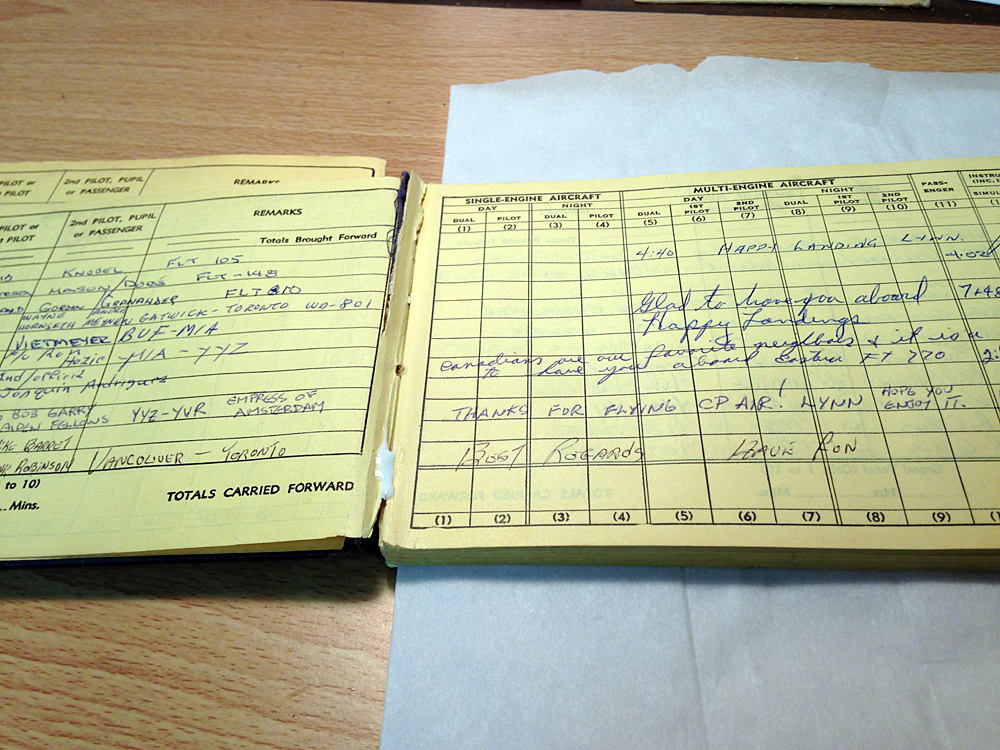 PILOT or
PILOT
2nd PILOT, PUPIL
or PASSENGER
REMARKS
PILOT or
PILOT
2nd PILOT, PUPIL
or PASSENGER
REMARKS
Totals Brought Forward
KNODEL FLT 105
MASON/ FLT - 148
GORDON GRANANDER FLT 810
WAYNE
HORNSETH MEYNEN GATWICK - TORONTO WD-801
VIETMEYER BUF-MIA
MIA - YYZ
BOB GARRY
ALDEN FELLOWS YYZ-YVR EMPRESS OF
AMSTERDAM
BARRET
ROBINSON VANCOUVER - TORONTO
to 10)
Mins.
TOTALS CARRIED FORWARD
SINGLE-ENGINE AIRCRAFT
MULTI-ENGINE AIRCRAFT
PASS-
ENGER
INSTRU
(INC. I
DAY
NIGHT
DAY
NIGHT
SIMUL
DUAL
PILOT
DUAL
PILOT
DUAL
1ST
PILOT
2ND
PILOT
DUAL
1ST
PILOT
2ND
PILOT
(1) (2) (3) (4) (5) (6) (7) (8) (9) (10) (11)
4:40 HAPPY LANDING LYNN.
Glad to have you aboard
Happy Landings
7+48
Canadians are our favorite neighbors & it is a
to have you aboard Eastern FT 770
THANKS FOR FLYING CP AIR! LYNN HOPE YOU
ENJOY IT.
BEST REGARDS DAVE RON
(1) (2) (3) (4) (5) (6) (7) (8) (9) (10)